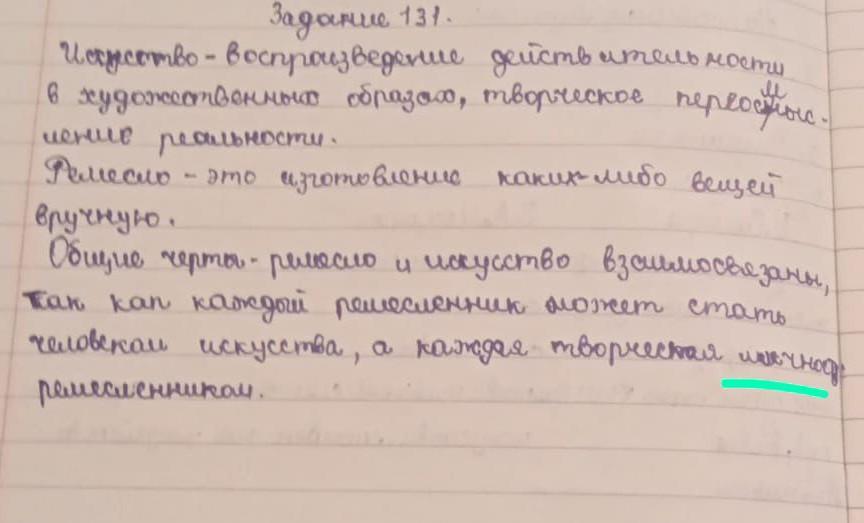 Задание 131.
Искусство - воспроизведение действительности
в художественных образах, творческое переосмыс-
ление реальности.
Ремесло - это изготовление каких-либо вещей
вручную.
Общие черты - ремесло и искусство взаимосвязаны,
так как каждый ремесленник может стать
человеком искусства, а каждая творческая
ремесленником.